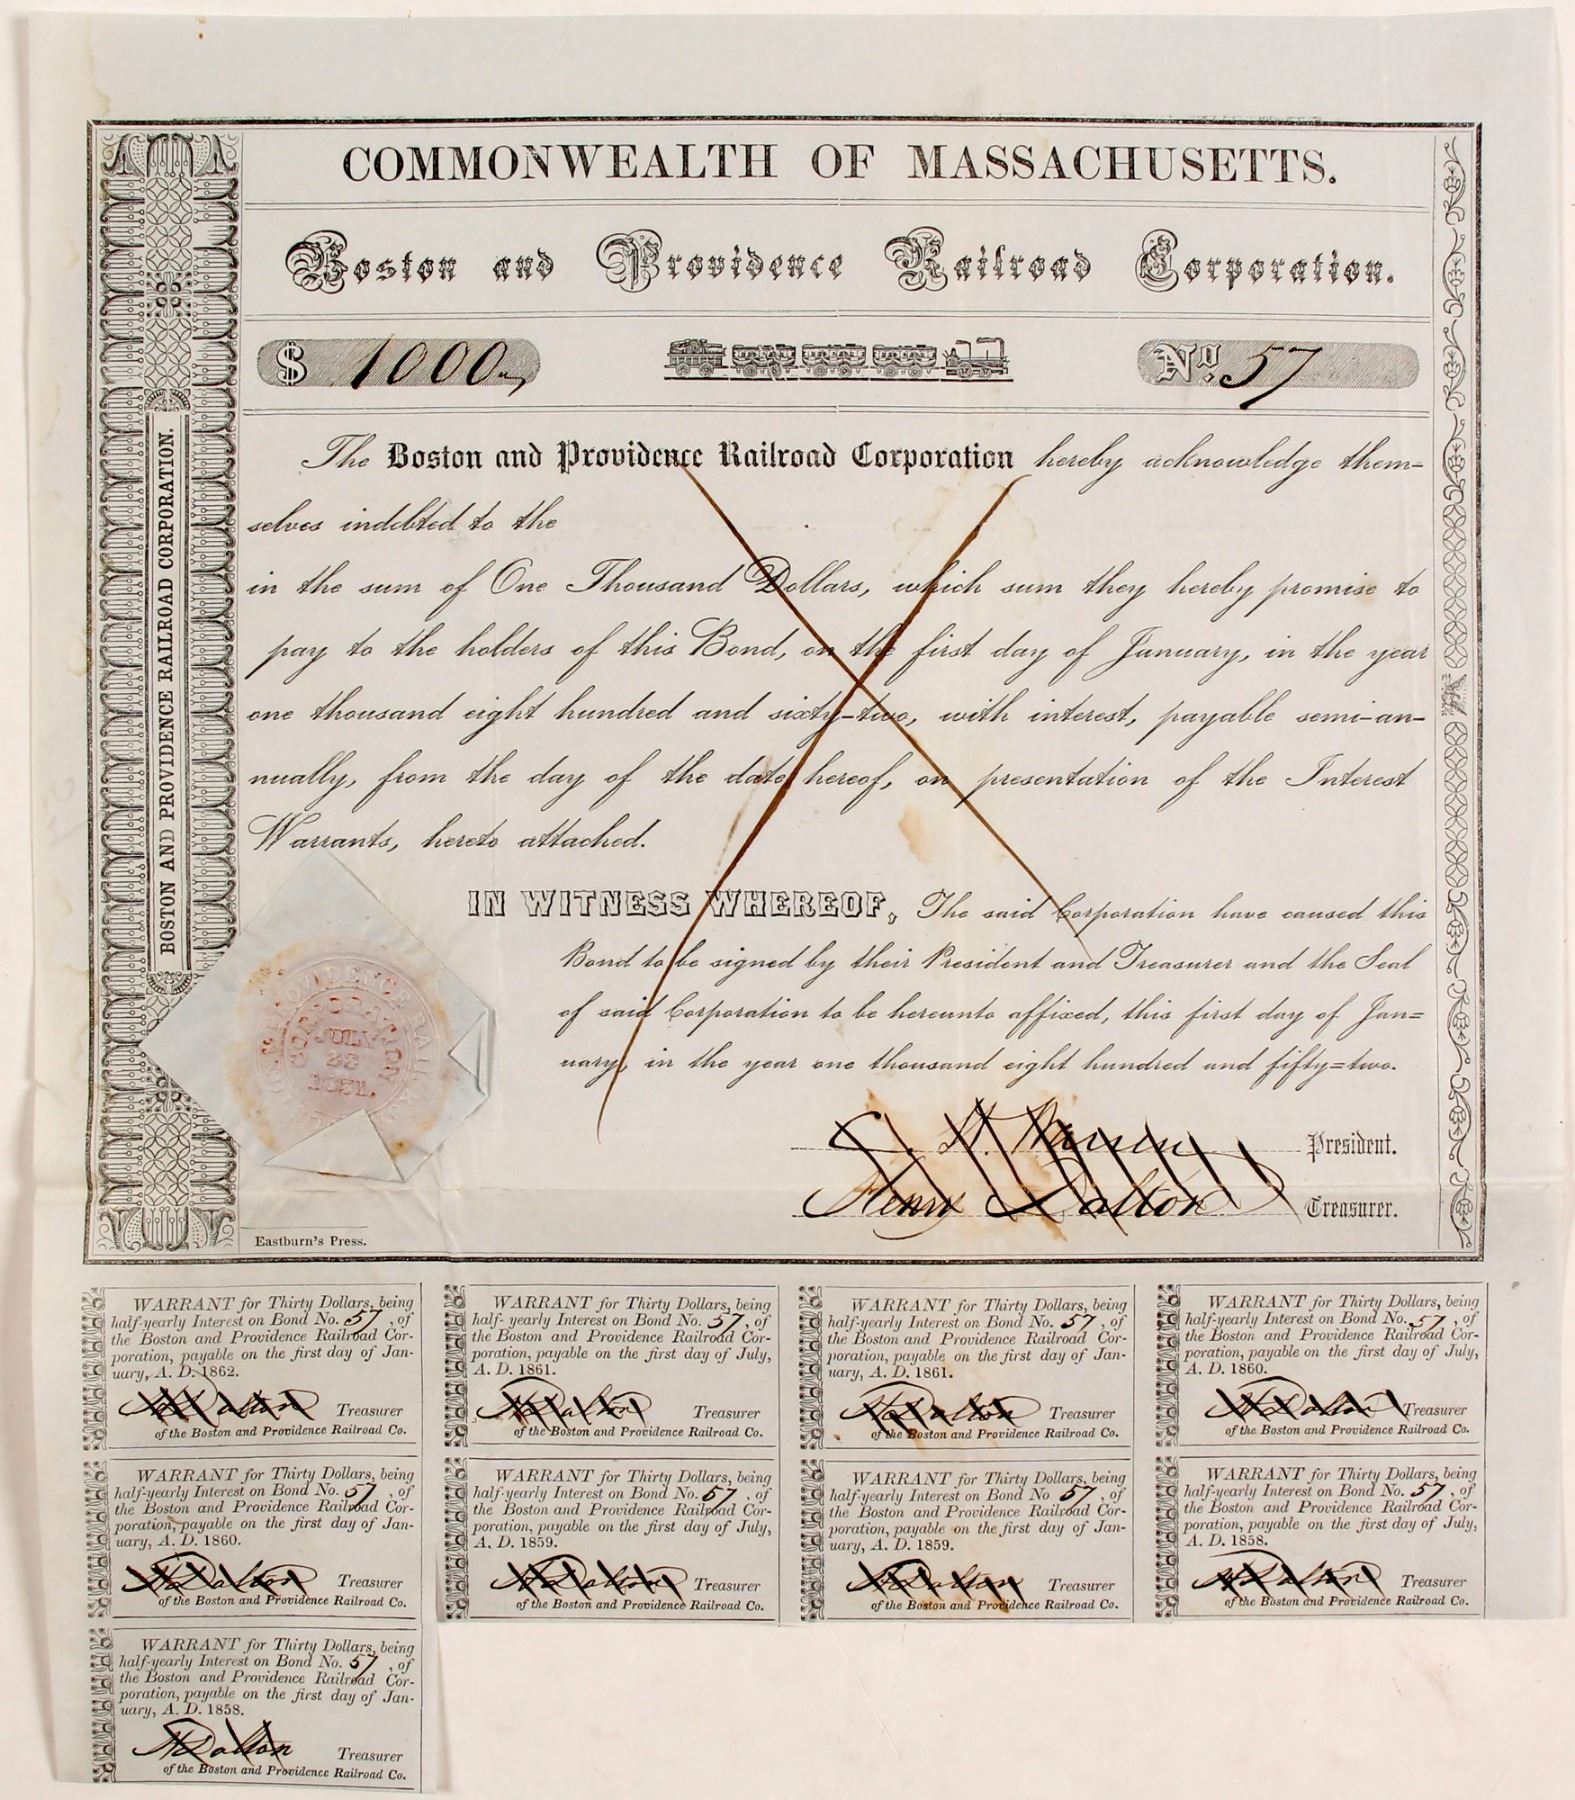 COMMONWEALTH OF MASSACHUSETTS.
Boston and Providence Railroad Corporation.
$ 1000
No. 57
BOSTON AND PROVIDENCE RAILROAD CORPORATION.
The Boston and Providence Railroad Corporation hereby acknowledge them-
selves indebted to the
in the sum of One Thousand Dollars, which sum they hereby promise to
pay to the holders of this Bond, on the first day of January, in the year
one thousand eight hundred and sixty-two, with interest, payable semi-an-
nually, from the day of the date hereof, on presentation of the Interest
Warrants, hereto attached.
IN WITNESS WHEREOF, The said Corporation have caused this
Bond to be signed by their President and Treasurer and the Seal
of said Corporation to be hereunto affixed, this first day of Jan=
uary, in the year one thousand eight hundred and fifty=two.
PROVIDENCE RAIL
CORPORATION
JULY
Warren President.
Henry Dalton Treasurer.
Eastburn's Press.
WARRANT for Thirty Dollars, being
half-yearly Interest on Bond No. 57, of
the Boston and Providence Railroad Cor-
poration, payable on the first day of Jan-
uary, A. D. 1862.
H Dalton Treasurer
of the Boston and Providence Railroad Co.
WARRANT for Thirty Dollars, being
half-yearly Interest on Bond No. 57, of
the Boston and Providence Railroad Cor-
poration, payable on the first day of July,
A. D. 1861.
H Dalton Treasurer
of the Boston and Providence Railroad Co.
WARRANT for Thirty Dollars, being
half-yearly Interest on Bond No. 57, of
the Boston and Providence Railroad Cor-
poration, payable on the first day of Jan-
uary, A. D. 1861.
H Dalton Treasurer
of the Boston and Providence Railroad Co.
WARRANT for Thirty Dollars, being
half-yearly Interest on Bond No. 57, of
the Boston and Providence Railroad Cor-
poration, payable on the first day of July,
A. D. 1860.
H Dalton Treasurer
of the Boston and Providence Railroad Co.
WARRANT for Thirty Dollars, being
half-yearly Interest on Bond No. 57, of
the Boston and Providence Railroad Cor-
poration, payable on the first day of Jan-
uary, A. D. 1860.
H Dalton Treasurer
of the Boston and Providence Railroad Co.
WARRANT for Thirty Dollars, being
half-yearly Interest on Bond No. 57, of
the Boston and Providence Railroad Cor-
poration, payable on the first day of July,
A. D. 1859.
H Dalton Treasurer
of the Boston and Providence Railroad Co.
WARRANT for Thirty Dollars, being
half-yearly Interest on Bond No. 57, of
the Boston and Providence Railroad Cor-
poration, payable on the first day of Jan-
uary, A. D. 1859.
H Dalton Treasurer
of the Boston and Providence Railroad Co.
WARRANT for Thirty Dollars, being
half-yearly Interest on Bond No. 57, of
the Boston and Providence Railroad Cor-
poration, payable on the first day of July,
A. D. 1858.
H Dalton Treasurer
of the Boston and Providence Railroad Co.
WARRANT for Thirty Dollars, being
half-yearly Interest on Bond No. 57, of
the Boston and Providence Railroad Cor-
poration, payable on the first day of Jan-
uary, A. D. 1858.
H Dalton Treasurer
of the Boston and Providence Railroad Co.